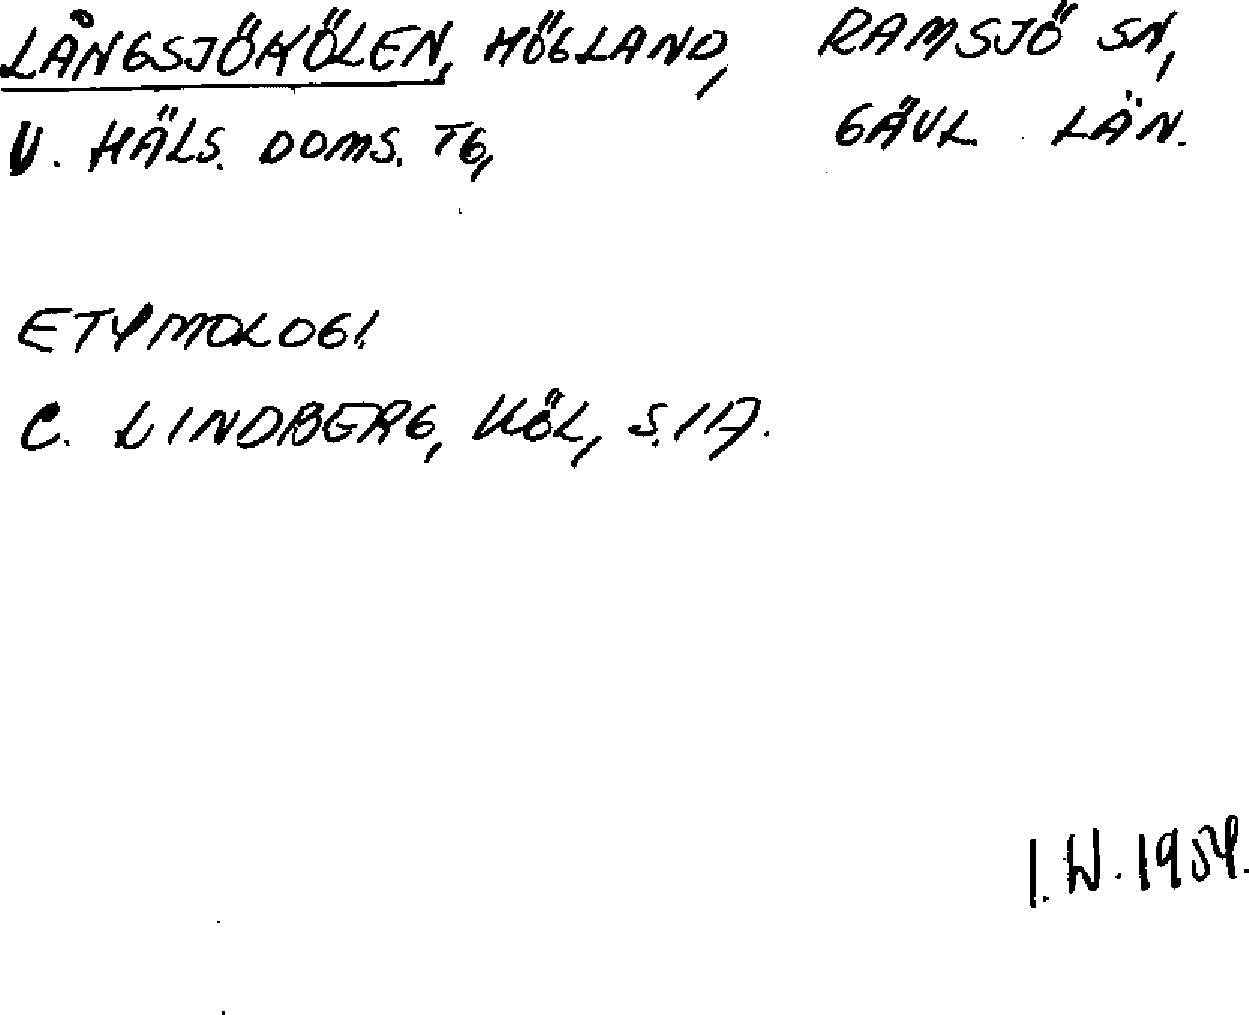 LÅNGSJÖKÖLEN, HÖGLAND, RAMSJÖ SN,
V. HÄLS. DOMS. TG, GÄVL. LÄN.
ETYMOLOGI.
C. LINDBERG, KÖL, S. 117.
I.W. 1954.